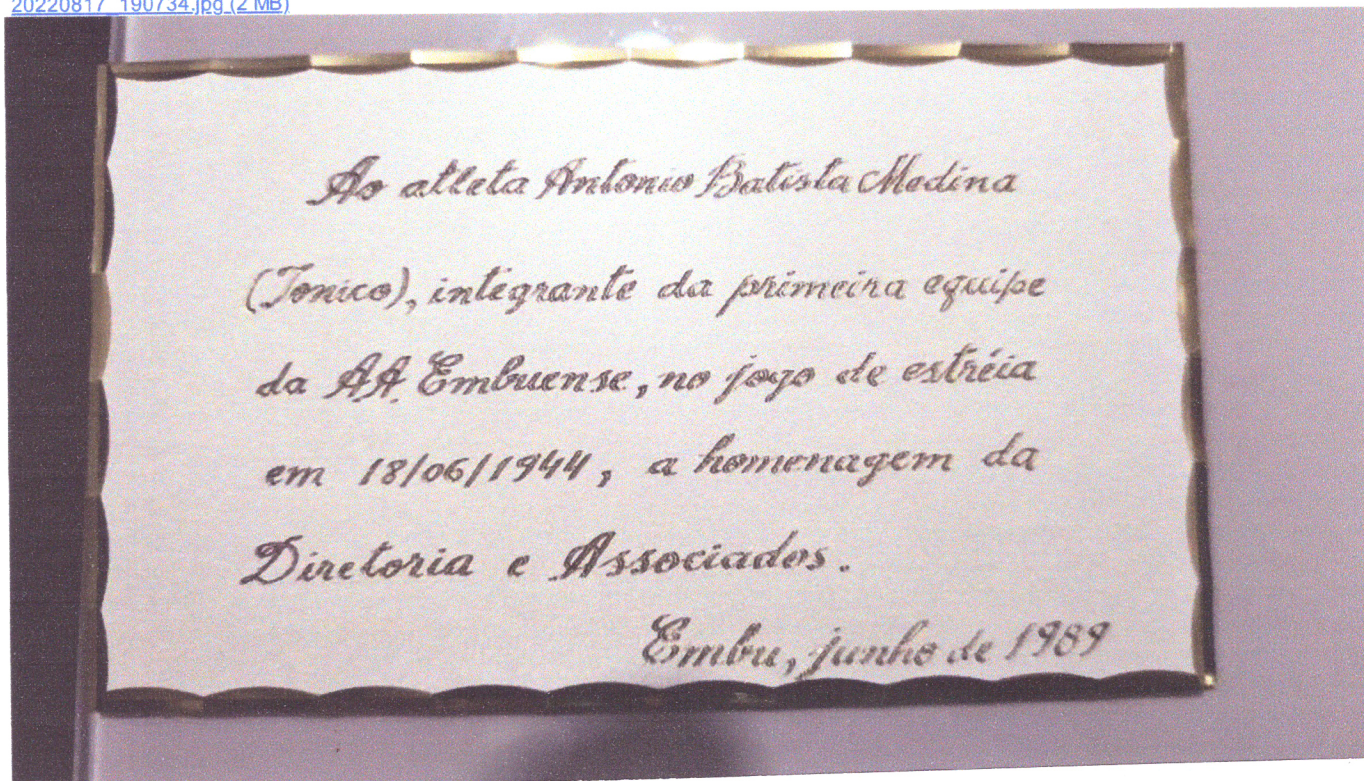 20220817_190734.jpg (2 MB)
Ao atleta Antonio Batista Medina
(Tonico), integrante da primeira equipe
da AA. Embuense, no jogo de estréia
em 18/06/1944, a homenagem da
Diretoria e Associados.
Embu, junho de 1989